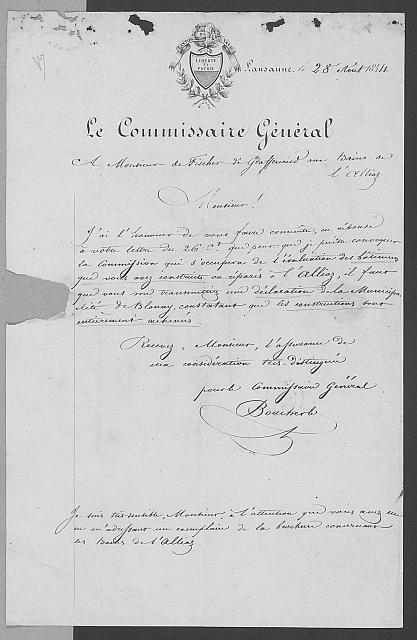 LIBERTÉ
ET
PATRIE
Lausanne, le 28 Août 1844
Le Commissaire Général
A Monsieur de Fischer de Graffenried aux Bains de
l'Alliaz
Monsieur!
J'ai l'honneur de vous faire connaitre, en réponse
à votre lettre du 26 ct que pour que je puisse convoquer
la Commission qui s'occupera de l'évaluation des bâtimens
que vous avez construits ou réparés à l'Alliaz, il faut
que vous me transmettiez une déclaration de la Municipa
lité de Blonay, constatant que les constructions sont
entièrement achevées.
Recevez, Monsieur, l'assurance de
ma considération très distinguée
pour le Commissaire Général
Je suis très sensible, Monsieur, à l'attention que vous avez eue
en m'adressant un exemplaire de la brochure concernant
les Bains de l'Alliaz